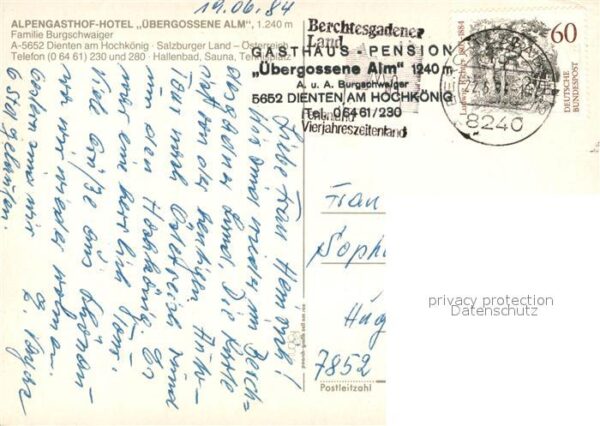 19.06.84
ALPENGASTHOF-HOTEL „ÜBERGOSSENE ALM", 1.240 m
Familie Burgschwaiger
A-5652 Dienten am Hochkönig · Salzburger Land – Österreich
Telefon (0 64 61) 230 und 280 · Hallenbad, Sauna, Tennisplatz
Berchtesgadener
Land
GASTHAUS - PENSION
„Übergossene Alm" 1240 m
A. u. A. Burgschwaiger
5652 DIENTEN AM HOCHKÖNIG
Tel. 06461/230
Ferienland
Vierjahreszeitenland
8240
1884
60
DEUTSCHE
BUNDESPOST
Liebe Frau Heinrich!
diesmal wieder im Berch-
tesgadner Land. Die Karte
ist von der heutigen Auto-
Tour nach Österreich rund
um den Hochkönig. Es
war eine herrliche Tour.
Viel Grüße aus Schönau
wo wir wieder wohnen.
Gestern sind wir
6 Std. gelaufen.
Frau
Soph
Hüg
7852
Postleitzahl
privacy protection
Datenschutz